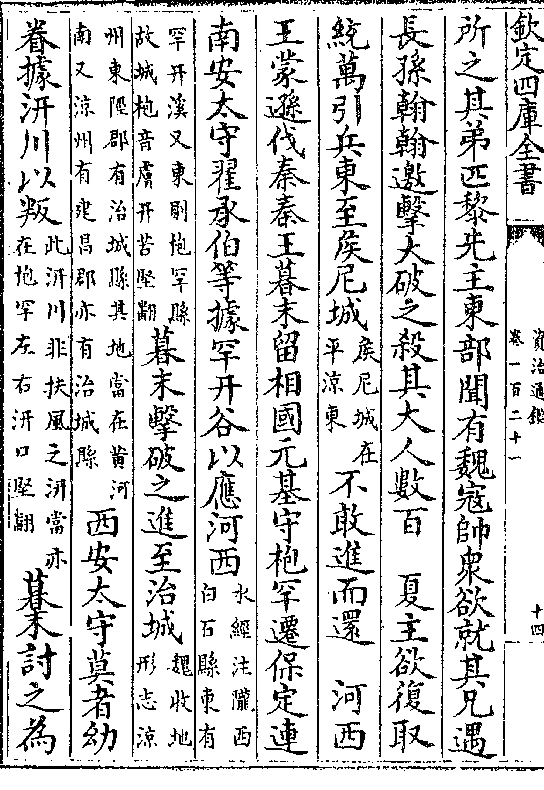 欽定四庫全書
資治通鑑
卷一百二十一
十四
所之其弟匹黎先主東部聞有魏寇帥衆欲就其兄遇
長孫翰翰邀擊大破之殺其大人數百　夏主欲復取
統萬引兵東至侯尼城侯尼城在平涼東不敢進而還　河西
王蒙遜伐秦秦王暮末留相國元基守枹罕遷保定連
南安太守翟承伯等據罕幵谷以應河西水經注隴西白石縣東有
罕幵溪又東則枹罕縣故城枹音膚幵苦堅翻暮末擊破之進至治城魏收地形志涼
州東陘郡有治城縣其地當在黄河南又涼州有建昌郡亦有治城縣西安太守莫者幼
眷據汧川以叛此汧川非扶風之汧當亦在枹罕左右汧口堅翻暮末討之為